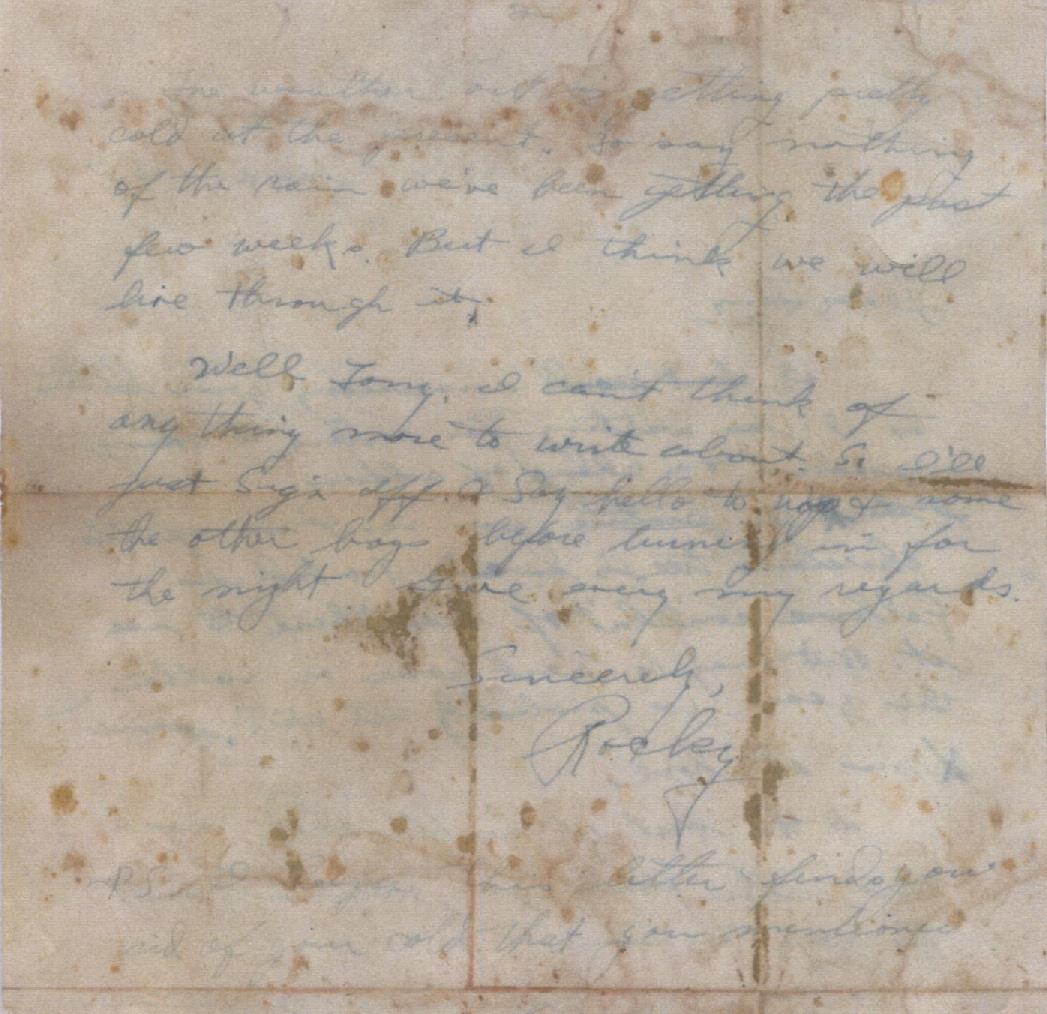 The weather out is getting pretty
cold at the present. To say nothing
of the rain we've been getting the past
few weeks. But I think we will
live through it.
Well Tony, I can't think of
any thing more to write about. So I'll
just sign off. Say hello to some
the other boys before turning in for
the night Give my regards.
Sincerely,
Rocky
P.S. I hope this letter finds you
rid of your cold that you mentioned